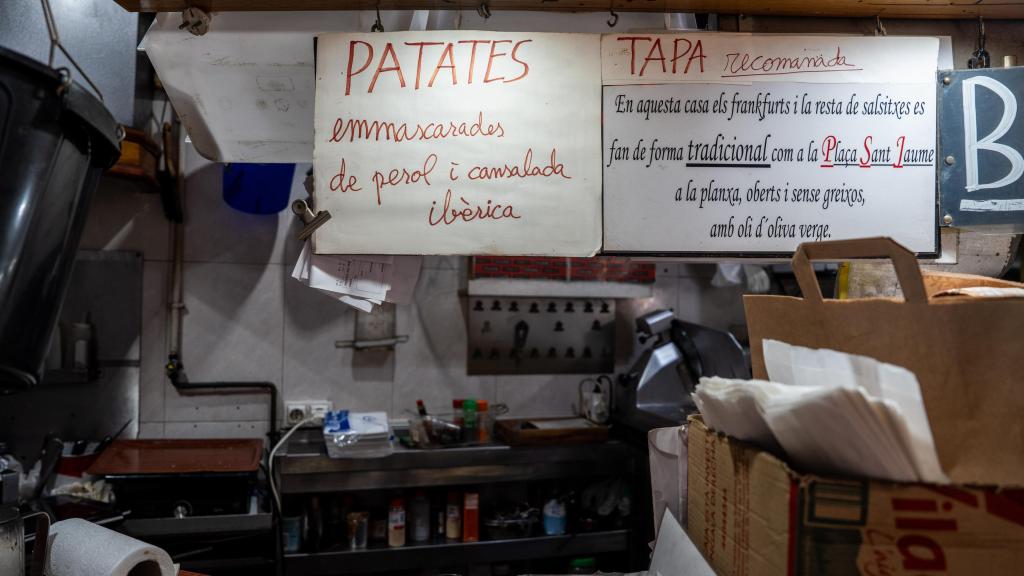 PATATES
emmascarades
de perol i cansalada
ibèrica
TAPA recomanada
En aquesta casa els frankfurts i la resta de salsitxes es
fan de forma tradicional com a la Plaça Sant Jaume
a la planxa, oberts i sense greixos,
amb oli d´oliva verge.
B
Vila